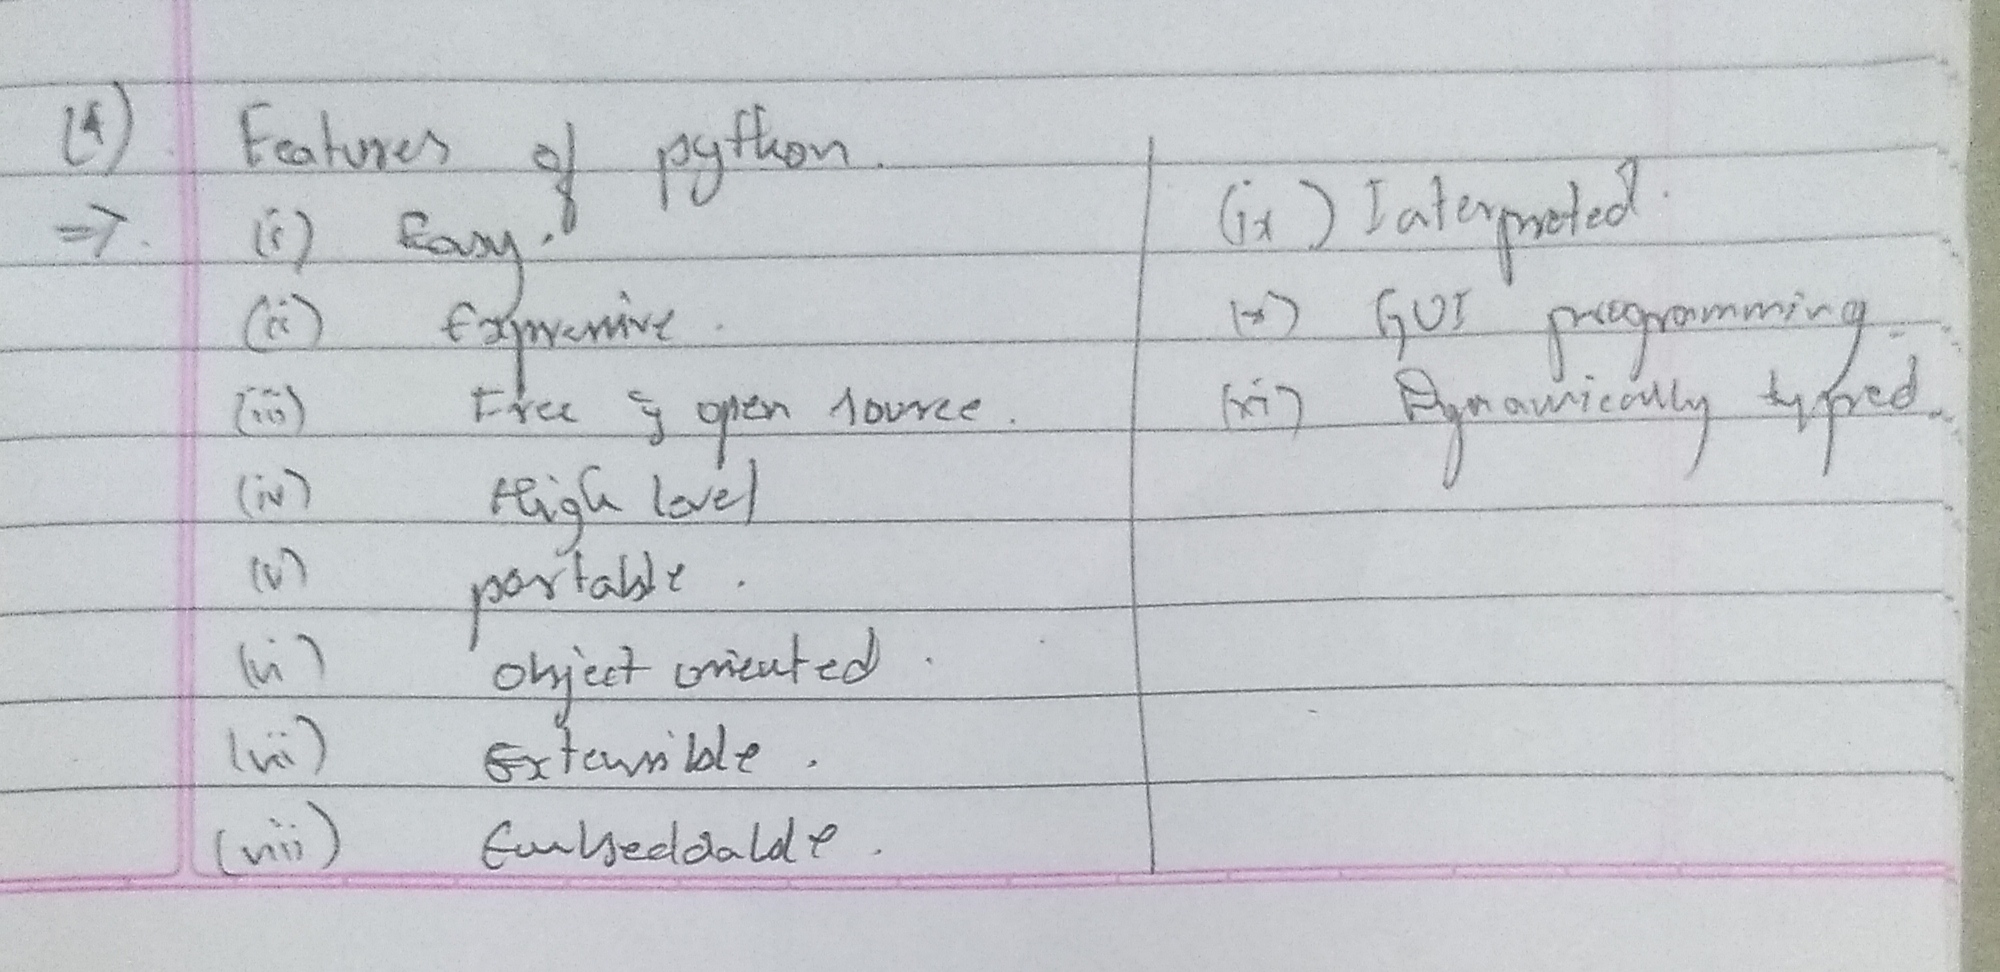 (4) Features of python.
=> (i) Easy.
(ii) Expressive.
(iii) Free & open source.
(iv) High level
(v) portable.
(vi) object oriented.
(vii) Extensible.
(viii) Embeddable.
(ix) Interpreted.
(x) GUI programming.
(xi) Dynamically typed.